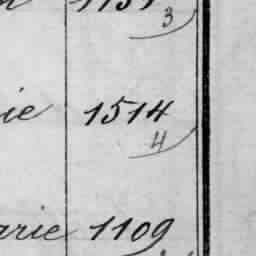 3
ie 1514
4
arie 1109